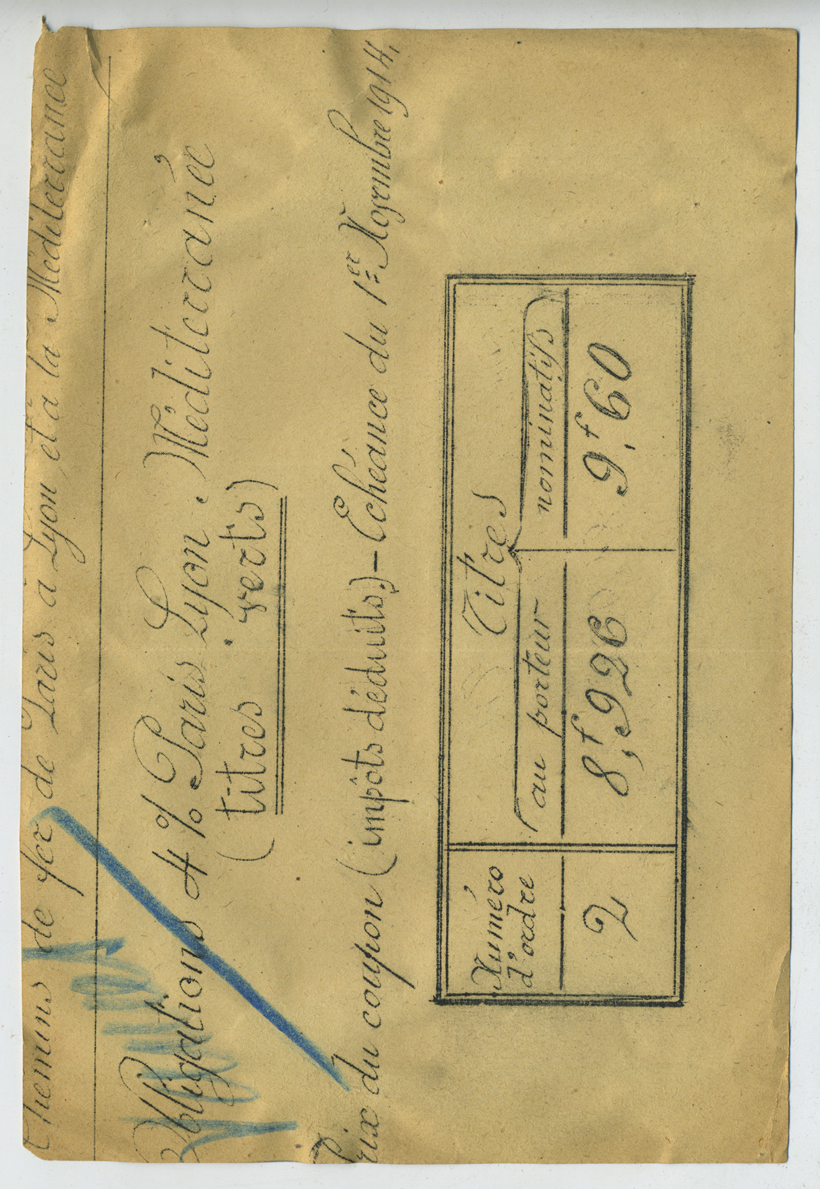 Chemins de fer de Paris à Lyon et à la Méditerranée
Obligations 4% Paris Lyon Méditerranée
(titres verts)
Prix du coupon (impôts déduits) – Echéance du 1er Novembre 1914,
Numéro d'ordre
Titres
au porteur
nominatifs
2
8f,926
9f,60